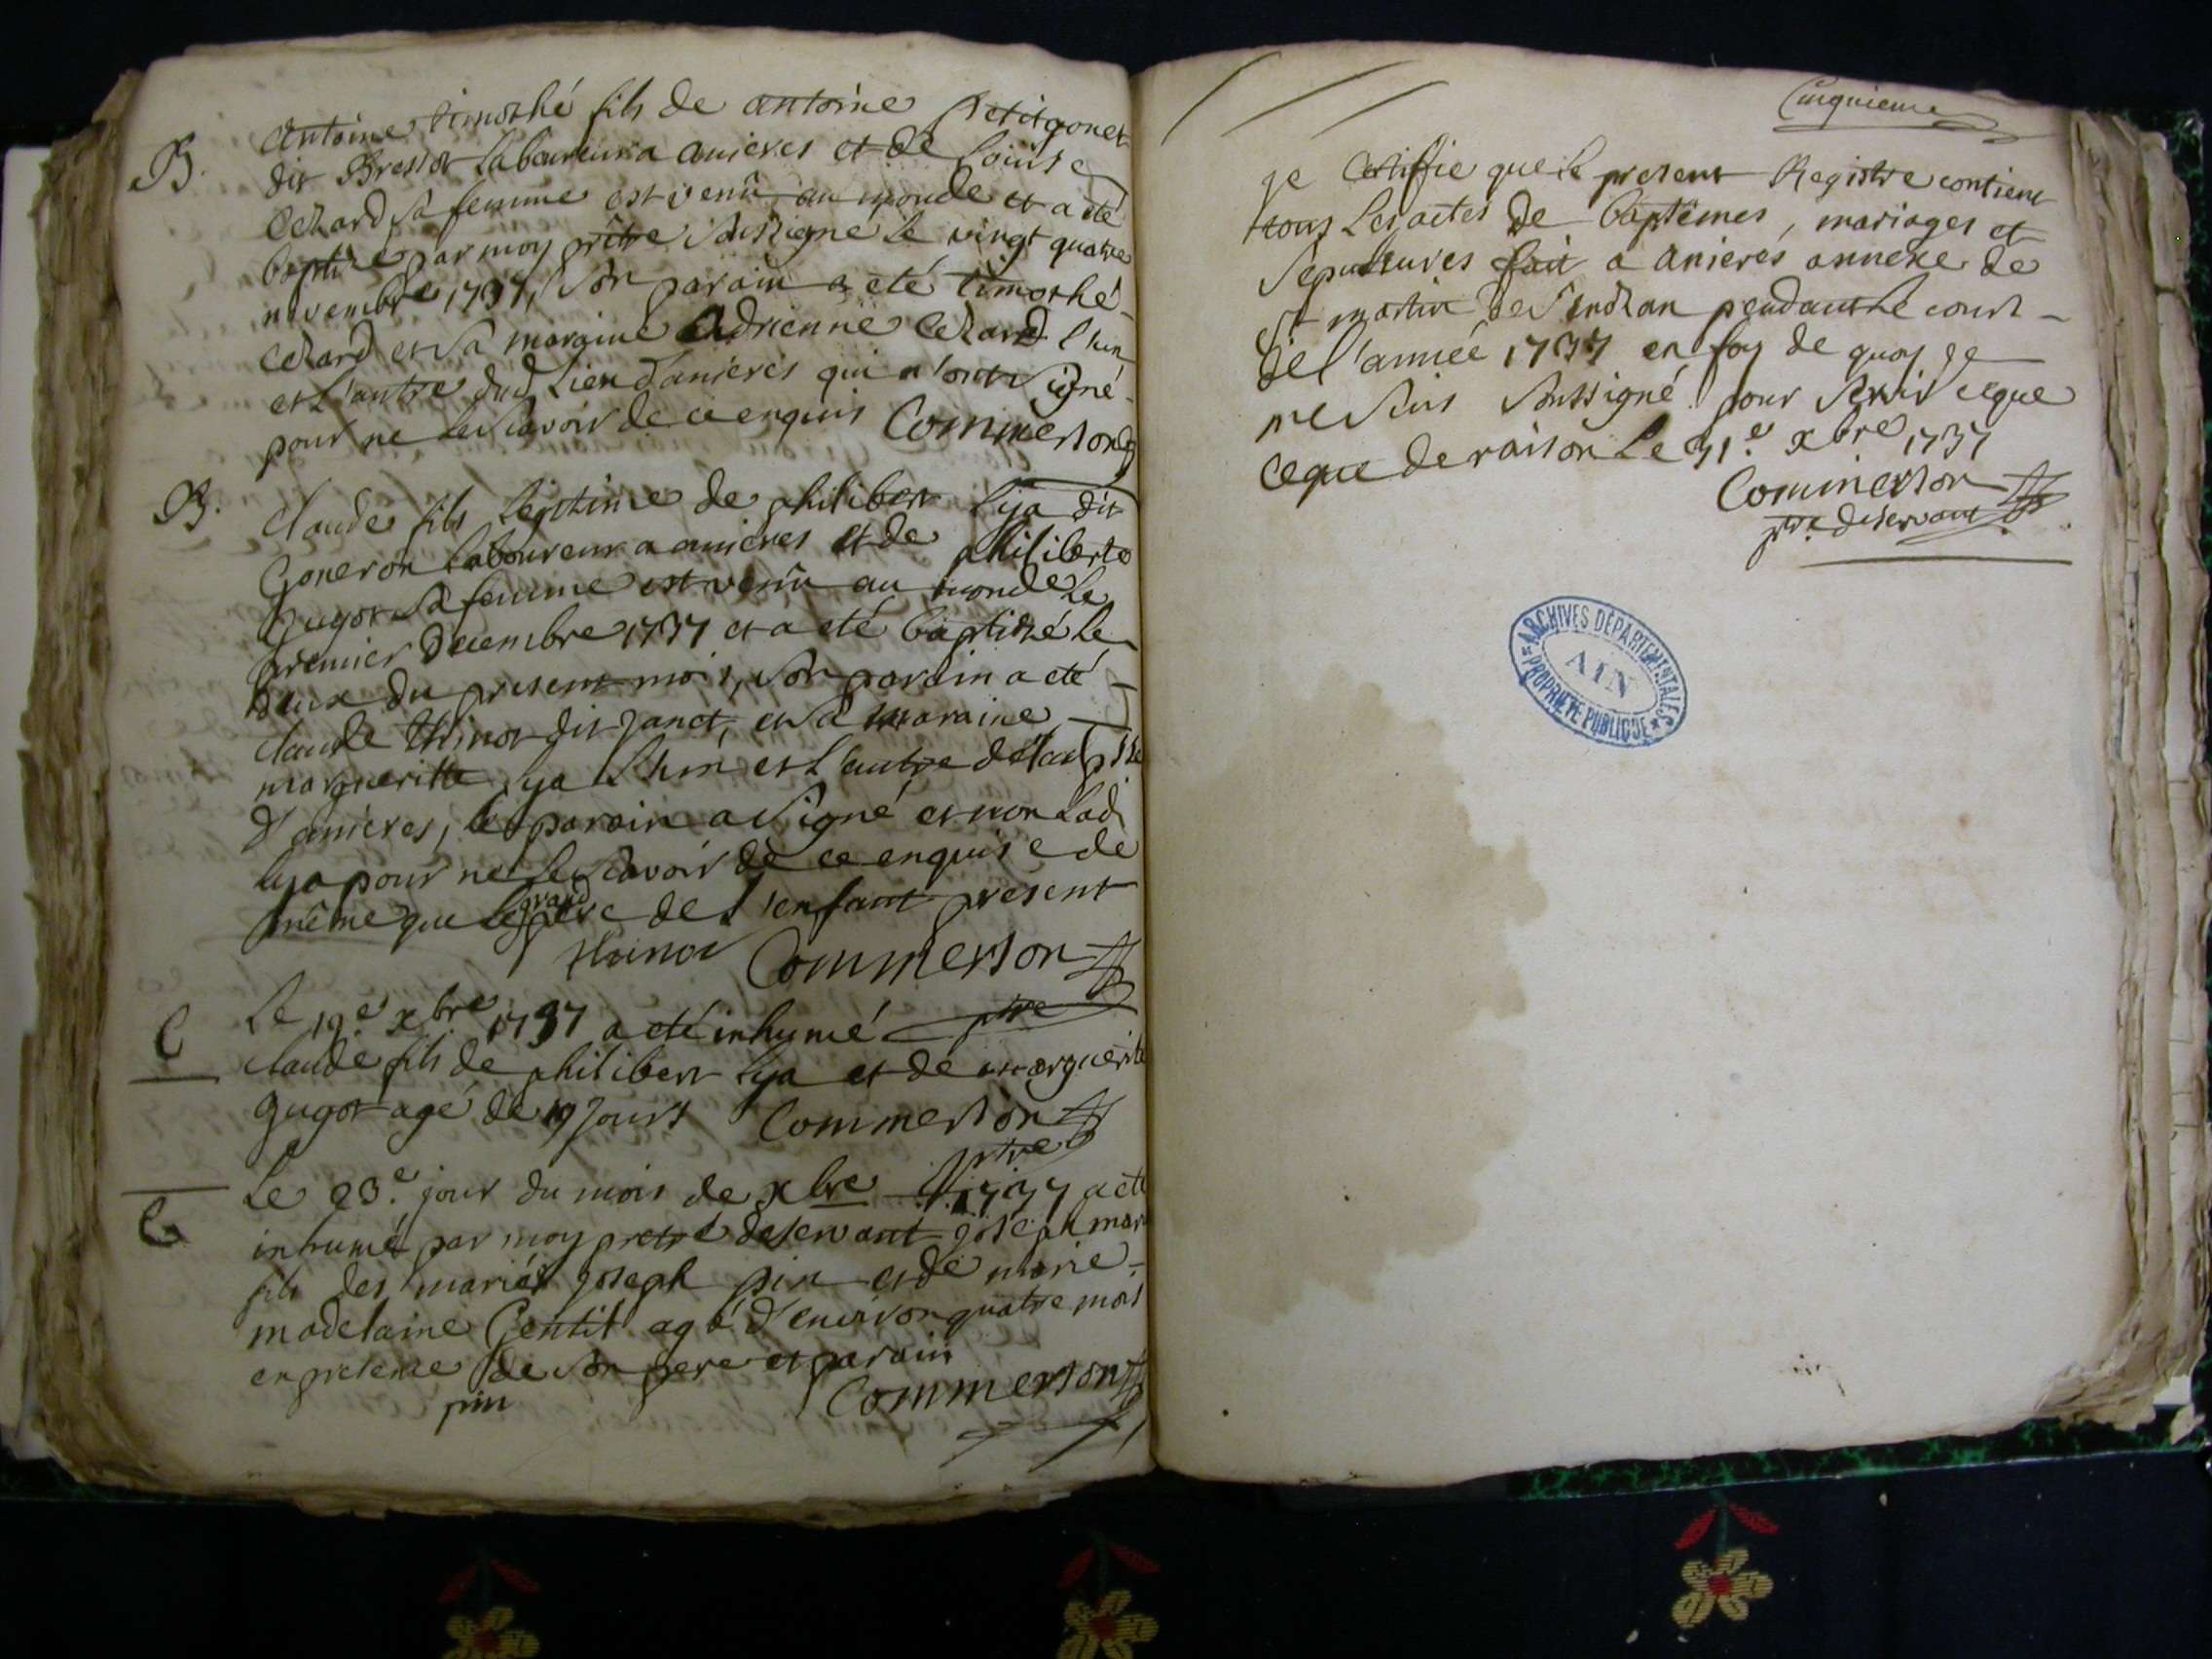 B.
Antoine timothé fils de antoine Petitgonet
dit Bressot laboureur a anieres et de Louise
Cchard sa femme est venû au monde et a eté
baptisé par moy prêtre soussigné le vingt quatre
novembre 1737, son parain a eté timothé
Cchard et sa maraine Adrienne Cchard l'un
et l'autre dud lieu d'anieres qui n'ont signé
pour ne le scavoir de ce enquis Commerson
B.
Claude fils legitime de philibert lya dit
Goneron laboureur a anieres et de philiberte
gugot sa femme est venû au monde le
premier decembre 1737 et a eté baptisé le
deux du present mois, son parain a eté
claude thinot dit Janet, et sa maraine
margueritte lya l'hun et l'autre de lad psse
d'anieres, le parain a signé et non lad
lya pour ne le scavoir de ce enquise de
même que le grand pere de l'enfant present
Commerson
ptre
C
Le 19e xbre 1737 a eté inhumé
claude fils de philibert lya et de marguerite
gugot agé de 19 jours Commerson
ptre
C
Le 23e jour du mois de xbre 1737 a eté
inhumé par moy pretre deservant joseph marie
fils des mariés joseph pin et de marie
madelaine Gentil agé d'environ quatre mois
en presence de son pere et parain
pin Commerson
Cinquieme
je Certiffie que le present Registre contient
tous Les actes de baptêmes, mariages et
sepultures fait a anieres annexe de
st martin de Sendran pendant le cours
de l'année 1737 en foy de quoy je
me suis soussigné pour servir ce que
ce que de raison le 31e xbre 1737
Commerson
ptre deservant
ARCHIVES DÉPARTEMENTALES
AIN
PROPRIÉTÉ PUBLIQUE